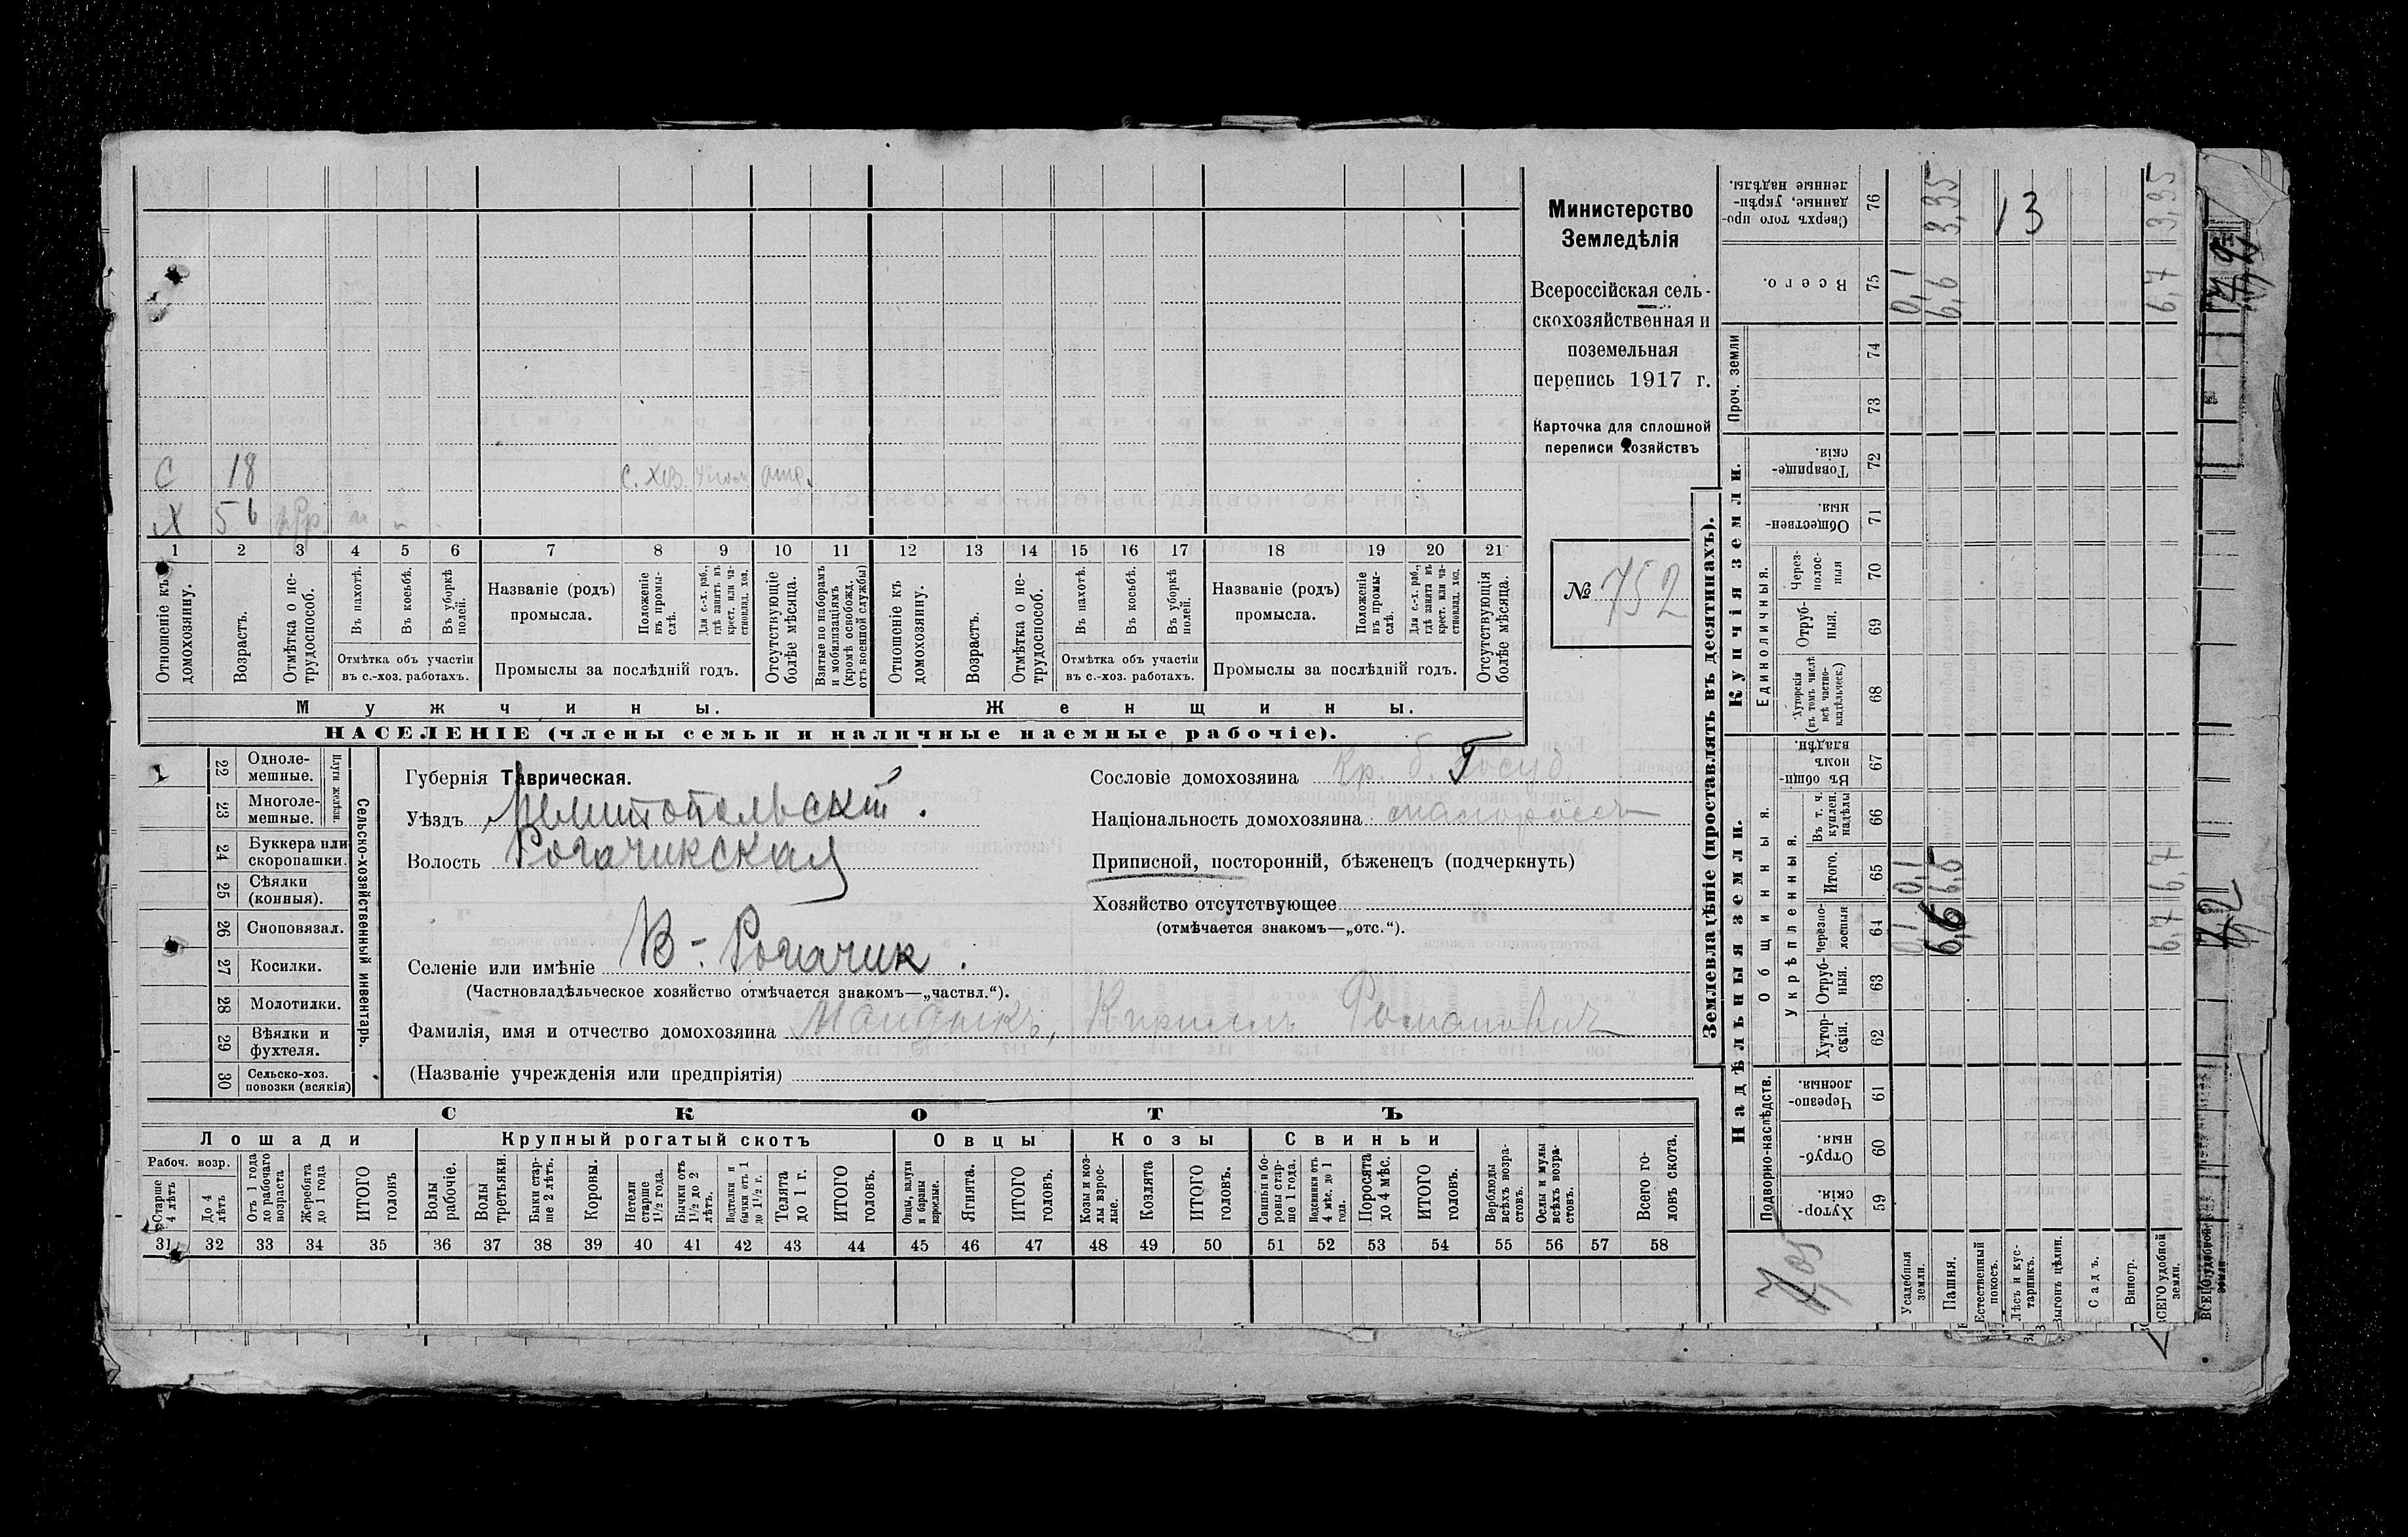 Министерство
Земледѣлія
Всероссійская сель-
скохозяйственная и
поземельная
перепись 1917 г.
Карточка для сплошной
переписи хозяйствъ
№ 752
С 18 С. хоз.
Х 56
1 2 3 4 5 6 7 8 9 10 11 12 13 14 15 16 17 18 19 20 21
Отношеніе къ домохозяину.
Возрастъ.
Отмѣтка о не-трудоспособ.
Въ пахотѣ.
Въ косьбѣ.
Въ уборкѣ полей.
Отмѣтка объ участіи
въ с.-хоз. работахъ.
Названіе (родъ)
промысла.
Положеніе въ промы-слѣ.
Для с.-х. раб., гдѣ занятъ въ крест. или ча-стновлад. хоз.
Промыслы за послѣдній годъ.
Отсутствующіе болѣе мѣсяца.
Взятые по наборамъ и мобилизаціямъ (кромѣ освобожд. отъ военной службы)
Отношеніе къ домохозяину.
Возрастъ.
Отмѣтка о не-трудоспособ.
Въ пахотѣ.
Въ косьбѣ.
Въ уборкѣ полей.
Отмѣтка объ участіи
въ с.-хоз. работахъ.
Названіе (родъ)
промысла.
Положеніе въ промы-слѣ.
Для с.-х. раб., гдѣ занята въ крест. или ча-стновлад. хоз.
Промыслы за послѣдній годъ.
Отсутствующія болѣе мѣсяца.
Мужчины. Женщины.
НАСЕЛЕНІЕ (члены семьи и наличные наемные рабочіе).
Сельско-хозяйственный инвентарь.
Плуги желѣзн.
1 22 Одноле-мешные.
23 Многоле-мешные.
24 Буккера или скоропашки.
25 Сѣялки (конныя).
26 Сноповязал.
27 Косилки.
28 Молотилки.
29 Вѣялки и фухтеля.
30 Сельско-хоз. повозки (всякія)
Губернія Таврическая.
Уѣздъ Мелитопольскій.
Волость Рогачикская
Селеніе или имѣніе В-Рогачик.
(Частновладѣльческое хозяйство отмѣчается знакомъ—„частвл.“).
Фамилія, имя и отчество домохозяина Кириллъ Романович
(Названіе учрежденія или предпріятія)
Сословіе домохозяина Кр. б. Госуд.
Національность домохозяина малоросъ
Приписной, посторонній, бѣженецъ (подчеркнуть)
Хозяйство отсутствующее
(отмѣчается знакомъ—„отс.“).
СКОТЪ
Лошади Крупный рогатый скотъ Овцы Козы Свиньи
Рабоч. возр.
Старше 4 лѣтъ
До 4 лѣтъ
Отъ 1 года до рабочаго возраста
Жеребята до 1 года
ИТОГО головъ
Волы рабочіе.
Волы третьяки.
Быки стар-ше 2 лѣтъ.
Коровы.
Нетели старше 1½ года.
Бычки отъ 1½ до 2 лѣтъ.
Подтелки и бычки отъ 1 до 1½ г.
Телята до 1 г.
ИТОГО головъ.
Овцы, валухи и бараны взрослые.
Ягнята.
ИТОГО головъ.
Козы и коз-лы взрос-лые.
Козлята
ИТОГО головъ.
Свиньи и бо-ровы стар-ше 1 года.
Подсвинки отъ 4 мѣс. до 1 года.
Поросята до 4 мѣс.
ИТОГО головъ.
Верблюды всѣхъ возра-стовъ.
Ослы и мулы всѣхъ возра-стовъ.
Всего го-ловъ скота.
31 32 33 34 35 36 37 38 39 40 41 42 43 44 45 46 47 48 49 50 51 52 53 54 55 56 57 58
Землевладѣніе (проставлять въ десятинахъ).
Надѣльныя земли. Купчія земли. Проч. земли
Подворно-наслѣдств.
Общинныя.
Укрѣпленныя.
Единоличныя.
Хутор-скія. 59
Отруб-ныя. 60
Черезпо-лосныя. 61
Хутор-скія. 62
Отруб-ныя. 63
Черезпо-лосныя 64
Итого. 65
Въ т. ч. куплен. надѣлы 66
Въ общи-номъ владѣн. 67
Хуторскія (въ томъ числѣ всѣ частно-владѣльческ.) 68
Отруб-ныя. 69
Через-полос-ныя 70
Обществен-ныя. 71
Товарище-скія. 72
73
74
Всего. 75
Сверхъ того про-данные, укрѣп-ленные надѣлы. 76
Усадебныя земли. 0,1 0,1 0,1
Пашня. 6,6 6,6 6,6 3,35
Естественный покосъ.
Лѣсъ и кус-тарникъ. 13
Выгонъ цѣлин.
Садъ.
Виногр.
ВСЕГО удобной земли. 6,7 6,7 6,7 3,35
7,2